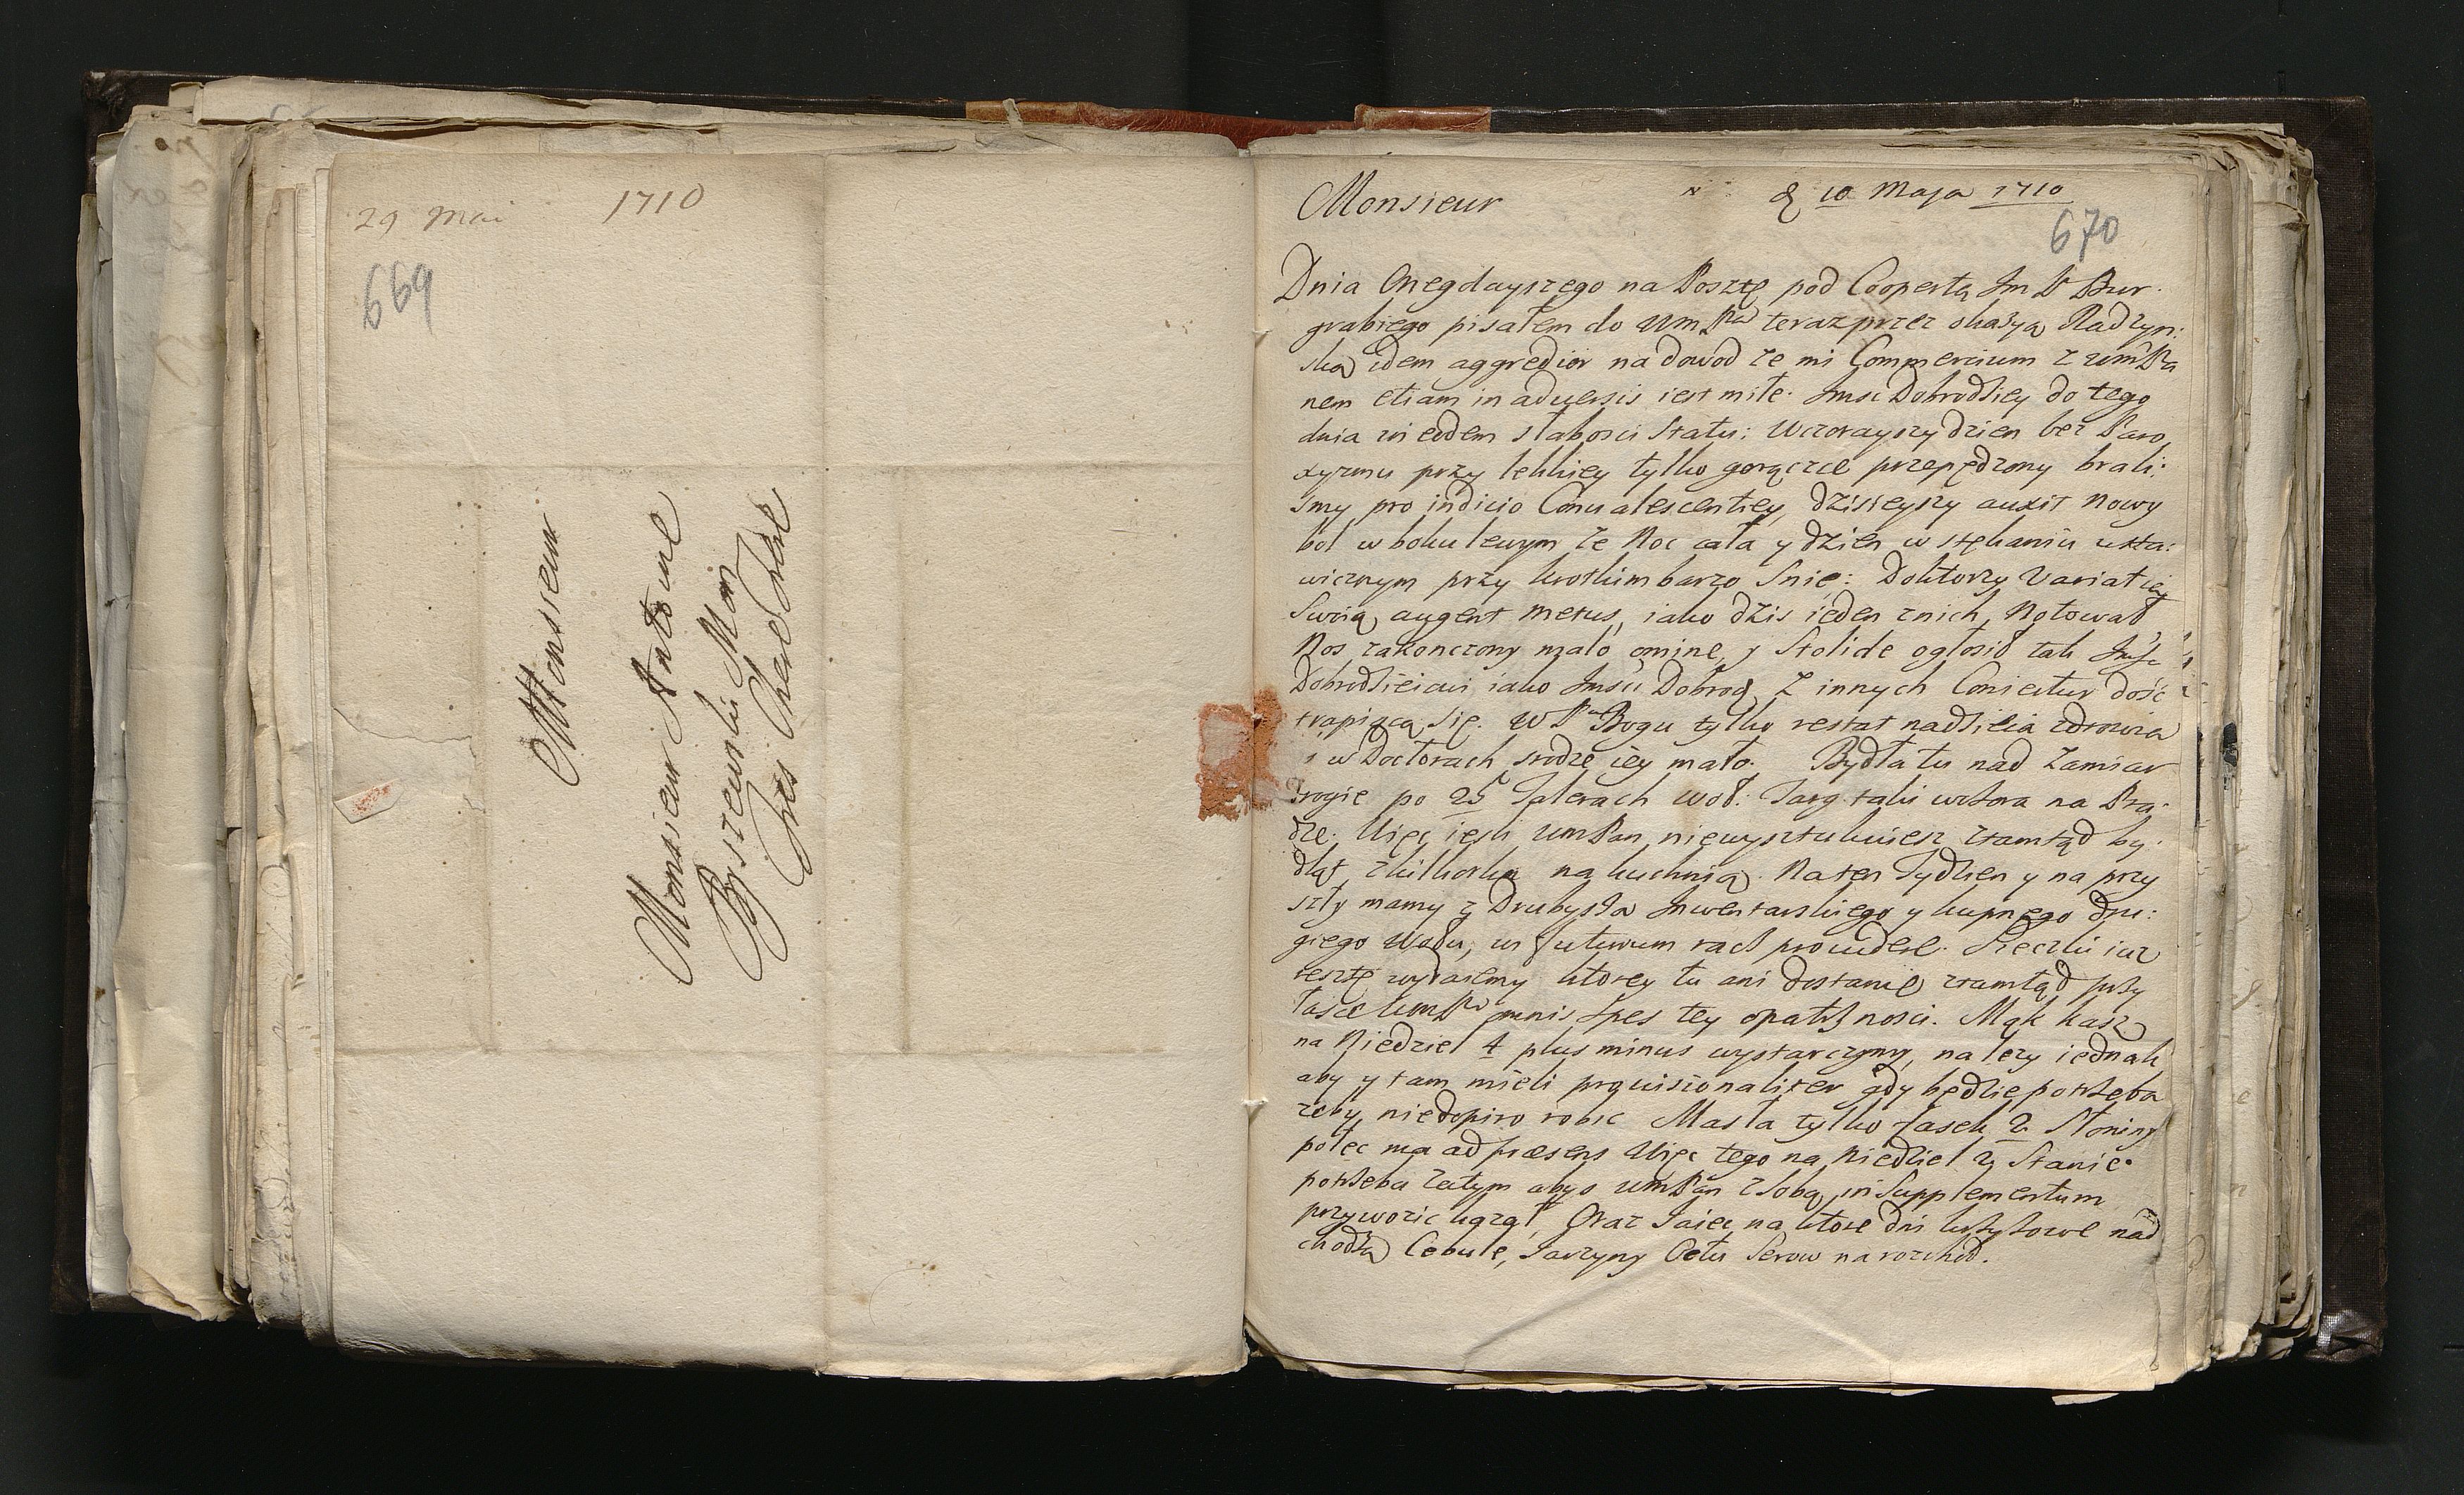 29 Mai 1710
669
Monsieur
Monsieur Antoine
Byszewski Mon
Tres Cher
Monsieur
d 10 Maja 1710
670
Dnia Onegdayszego na Posztę pod Coopertą Jm P Bur:
grabiego pisałem do UmPna teraz przez okazyą Radzyn:
ską idem aggredior na dowod ze mi Commercium z UmPa
nem etiam in adversis iest miłe. Jmsc Dobrodziey do tego
dnia in eodem słabosci statu: Wczorayszy dzien bez Paro
xyzmu przy lekkiey tylko gorączce przepędzony brali:
smy pro indicio Convalescentiey, dzisieyszy auxit nowy
bol w boku lewym ze Noc całą y dzien w stękaniu usta:
wicznym przy krotkim barzo snie: Doktorzy Variatią
swoią augent metus, iako dzis ieden znich Notował
Nos zakonczony malo omine, y Stolide ogłosił tak Jmsc
Dobrodzieiowi iako Jmsci Dobrod. Z innych Coniectur dość
trapiącą się. W Pnu Bogu tylko restat nadzieia zdrowia
w Doctorach srodze iey mało. Bydła tu nad zamiar
drogie po 25 Talerach woł. Targ taki wczora na Pra:
dze. Więc iesli UmPan niewysztukuiesz ztamtąd by:
dląt z kilkorka na kuchnią. Na ten Tydzien y na przy
szły mamy z Drubysza Inwentarskiego y kupnego dru:
giego Wołu, in futurum racz providere. Sieczki iuz
resztę wydaiemy ktorey tu ani dostanie ztamtąd przy
łasce UmPna omnis spes tey opatrznosci. Mąk kasz
na Niedziel 4 plus minus wystarczymy, nalezy iednak
aby y tam mieli provisionaliter gdy będzie potrzeba
zeby niedopiro robic Masła tylko fasek 2. Słoniny
połec ma ad præsens Więc tego na Niedziel 2 Stanie
potrzeba zatym abys UmPan z sobą in Supplementum
przywozic kazał, Oraz Jaiec na ktore dni krzyzowe nad
chodzą Cebule, Jarzyny Octu Serow na rozchod.